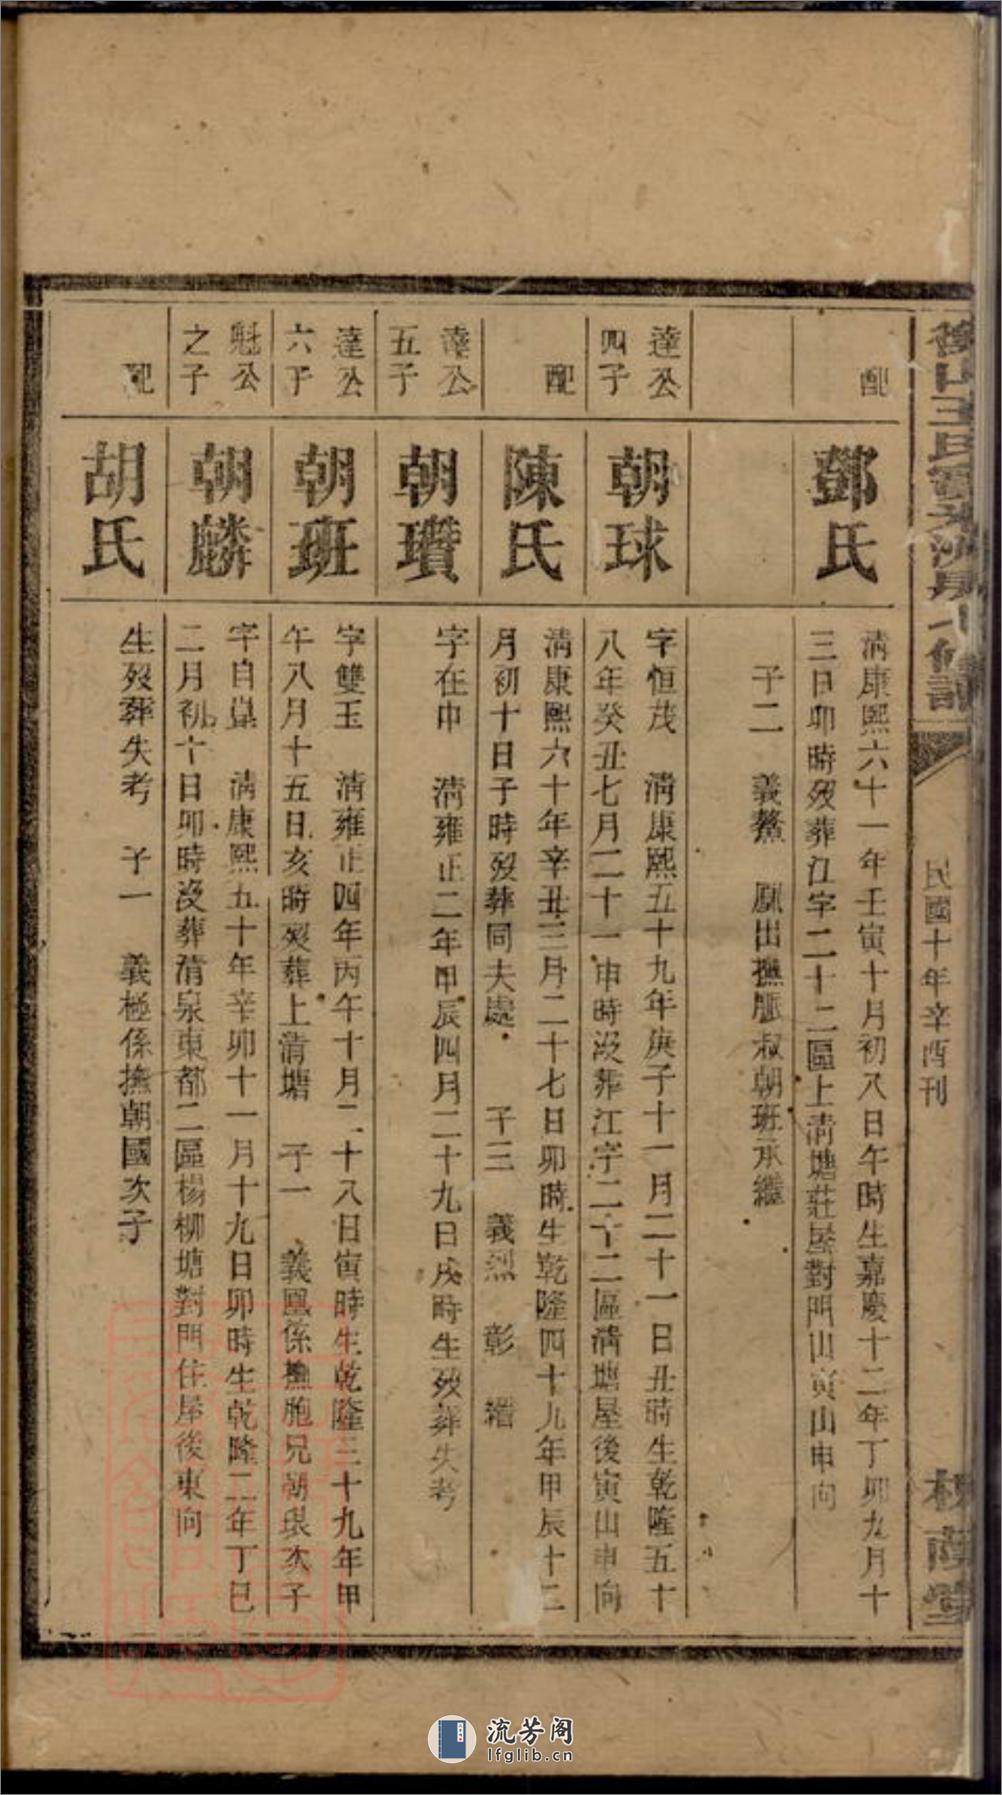 民國十年辛酉刊
配
鄧氏
清康熙六十一年壬寅十月初八日午時生嘉慶十二年丁卯九月十
三日卯時歿葬江字二十二區上清塘莊屋對門山寅山申向
子二 義鰲 鳳出撫胞叔朝班承繼
達公
四子
朝球
字恒茂 清康熙五十九年庚子十一月二十一日丑時生乾隆五十
八年癸丑七月二十一申時歿葬江字二十二區清塘屋後寅山申向
配
陳氏
清康熙六十年辛丑三月二十七日卯時生乾隆四十九年甲辰十二
月初十日子時歿葬同夫處 子三 義烈 彰 縉
達公
五子
朝瓚
字在中 清雍正二年甲辰四月二十九日戌時生歿葬失考
達公
六子
朝班
字雙玉 清雍正四年丙午十月二十八日寅時生乾隆三十九年甲
午八月十五日亥時歿葬上清塘 子一 義鳳係撫胞兄朝 次子
魁公
之子
朝麟
字自 清康熙五十年辛卯十一月十九日卯時生乾隆二年丁巳
二月初十日卯時沒葬清泉東都二區楊柳塘對門住屋後東向
配
胡氏
生歿葬失考 子一 義極係撫朝國次子
流芳阁
lfglib.cn